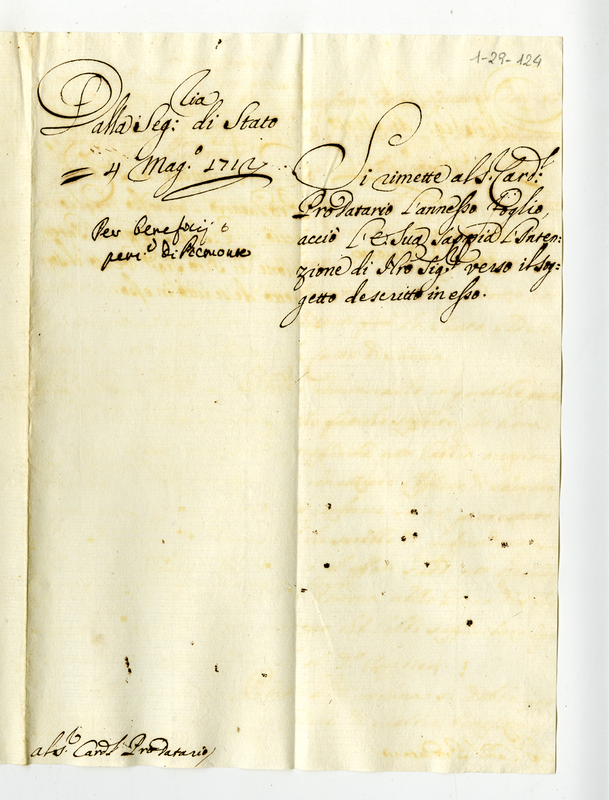 1-29-124
Dalla Seg:ria di Stato
= 4 Mag.o 1712
Per beneficij o
pens.i di Piemonte
Si rimette al S.r Card.l:
ProDatario l'annesso foglio,
acciò l'E. Sua sappia l'Inten:
zione di Nro Sig.re verso il sog:
getto descritto in esso.
al S.r Card.l ProDatario